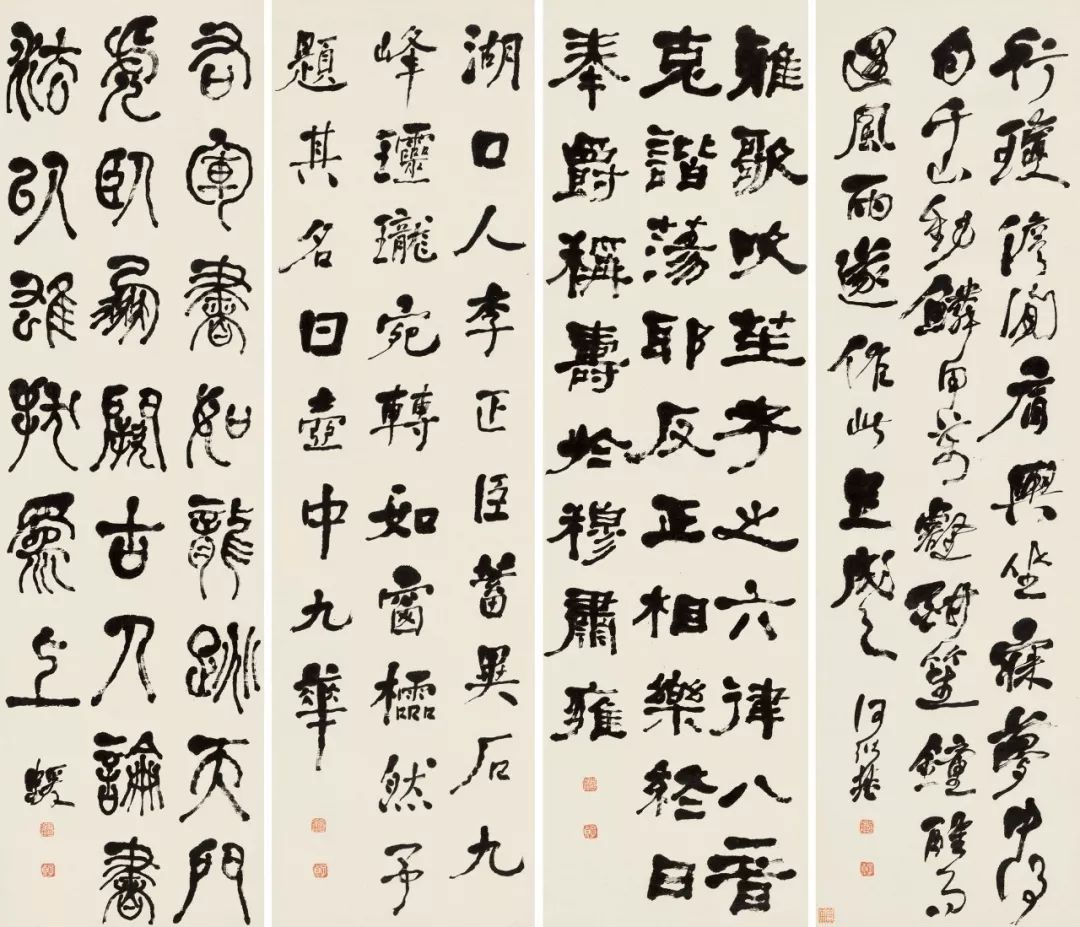 行瓊儋間肩輿坐寐夢中得
句千山動鱗甲萬壑酣笙鐘醒而
遇風雨遂作此足成之
何紹基
雅歌吹笙考之六律八音
克諧蕩耶反正相樂終日
奉爵稱壽於穆肅雍
湖口人李正臣蓄異石九
峰玲瓏宛轉如窗櫺然予
題其名曰壺中九華
右軍書如龍跳天門
虎臥鳳闕古人論書
法以雄拔爲上
蝯